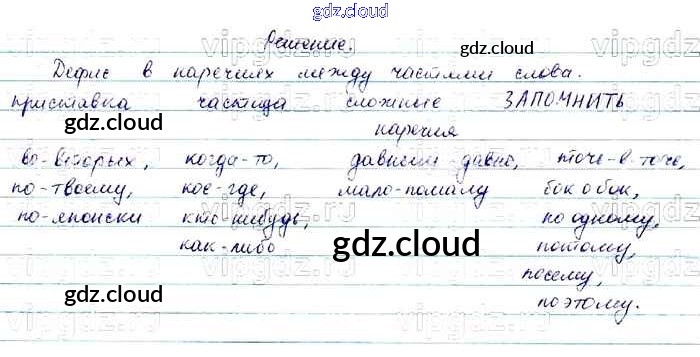 gdz.cloud
Решение.
gdz.cloud
Дефис в наречиях между частями слова.
приставка частица сложные ЗАПОМНИТЬ
gdz.cloud gdz.cloud
наречия
во-вторых, когда-то, давным-давно, точь-в-точь,
по-твоему, кое-где, мало-помалу бок о бок,
по-японски кто-нибудь, по одному,
как-либо gdz.cloud потому,
посему,
gdz.cloud поэтому.